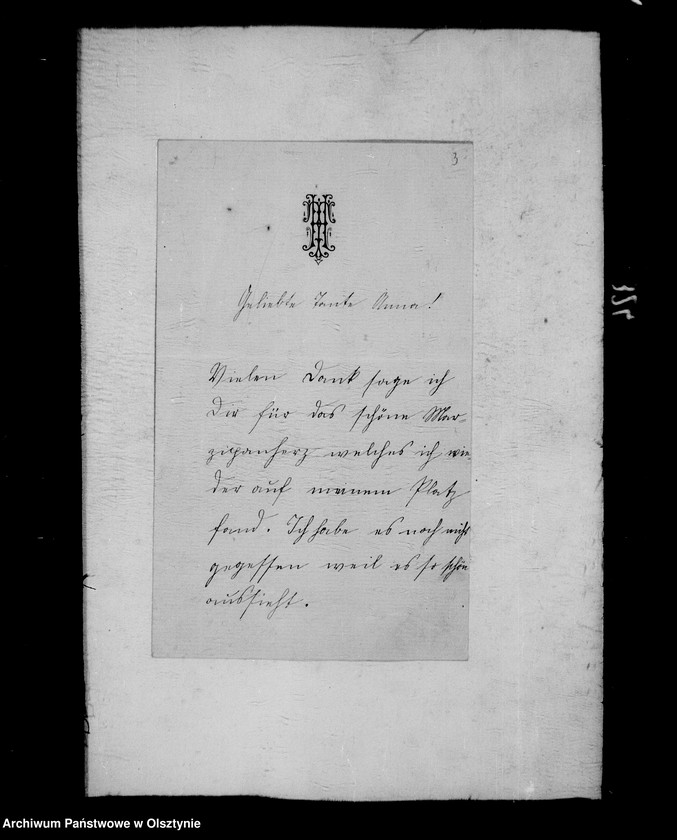 3
Geliebte Tante Anna!
Vielen Dank sage ich
Dir für das schöne Mar-
zipanherz welches ich wie-
der auf meinem Platz
fand. Ich habe es noch nicht
gegessen weil es so schön
aussieht.
324
Archiwum Państwowe w Olsztynie